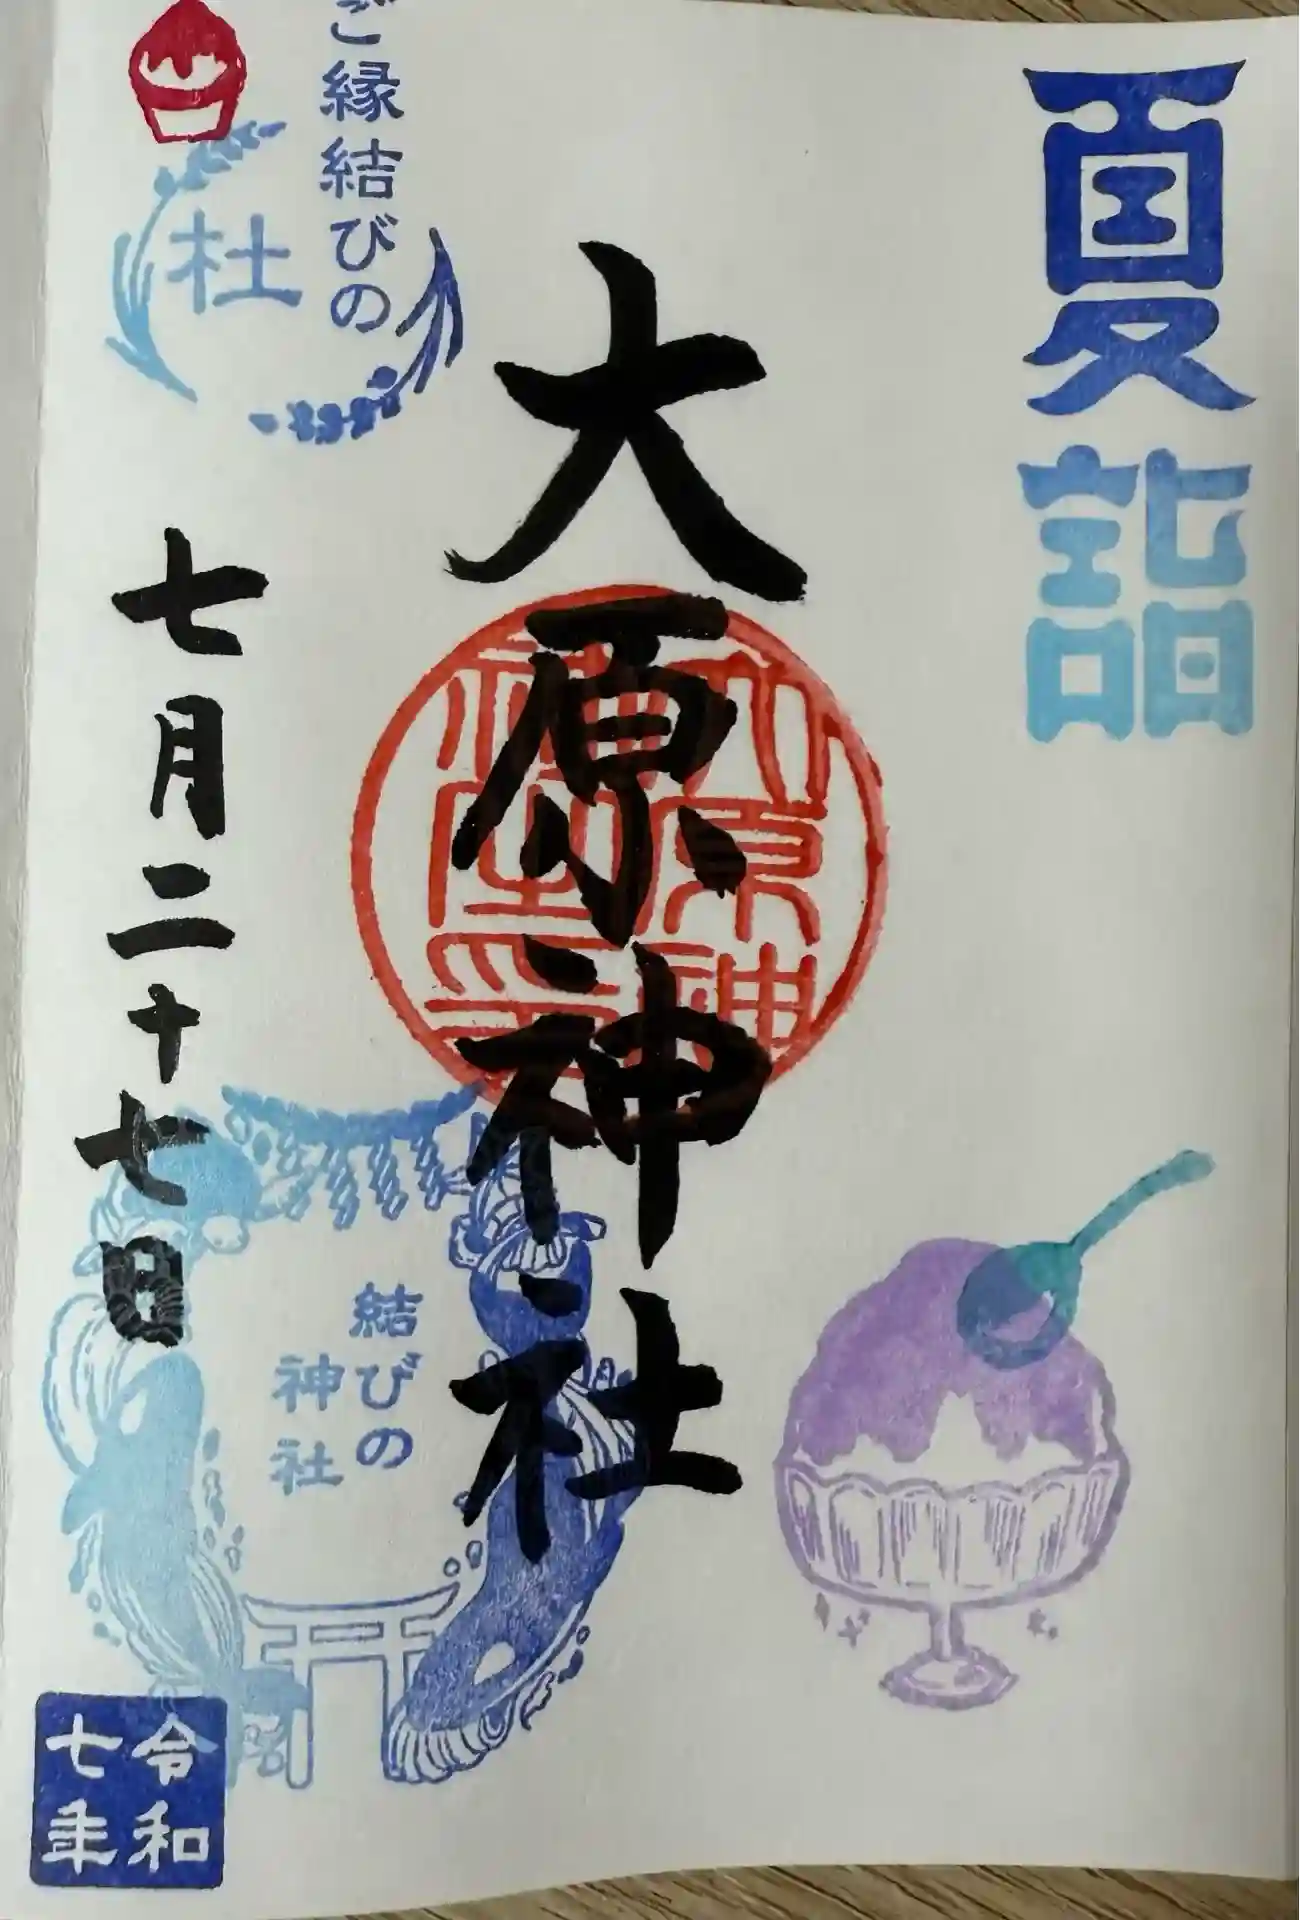 夏詣
大原神社
大原神社之印
ご縁結びの
杜
七月二十七日
結びの
神社
令和
七年